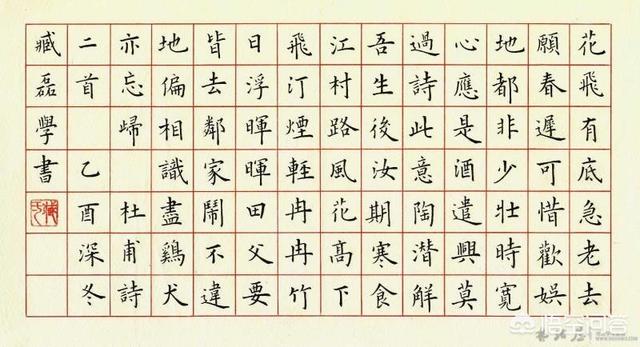 花飛有底急老去
願春遲可惜歡娛
地都非少壯時寬
心應是酒遣興莫
過詩此意陶潛解
吾生後汝期寒食
江村路風花髙下
飛汀煙輕冉冉竹
日浮暉暉田父要
皆去鄰家鬧不違
地偏相識盡鷄犬
亦忘歸 杜甫詩
二首 乙酉深冬
臧磊學書
悟空问答